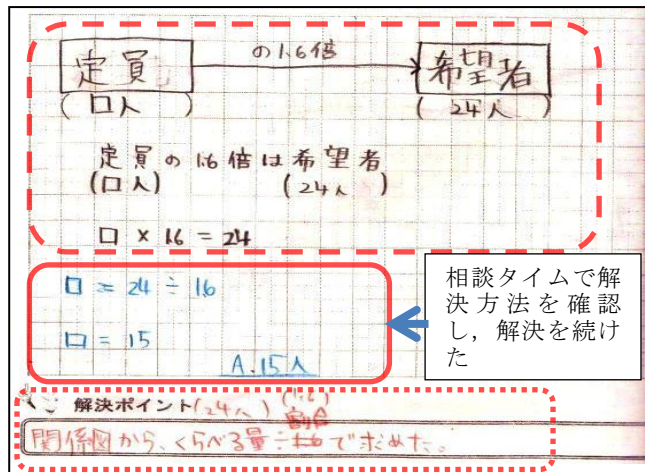 定員
の1.6倍
希望者
(□人)
(24人)
定員の1.6倍は希望者
(□人)
(24人)
□×1.6=24
□=24÷1.6
□=15
A.15人
相談タイムで解
決方法を確認
し，解決を続け
た
解決ポイント(24人)
(1.6)
割合
関係図から、くらべる量÷1.6で求めた。